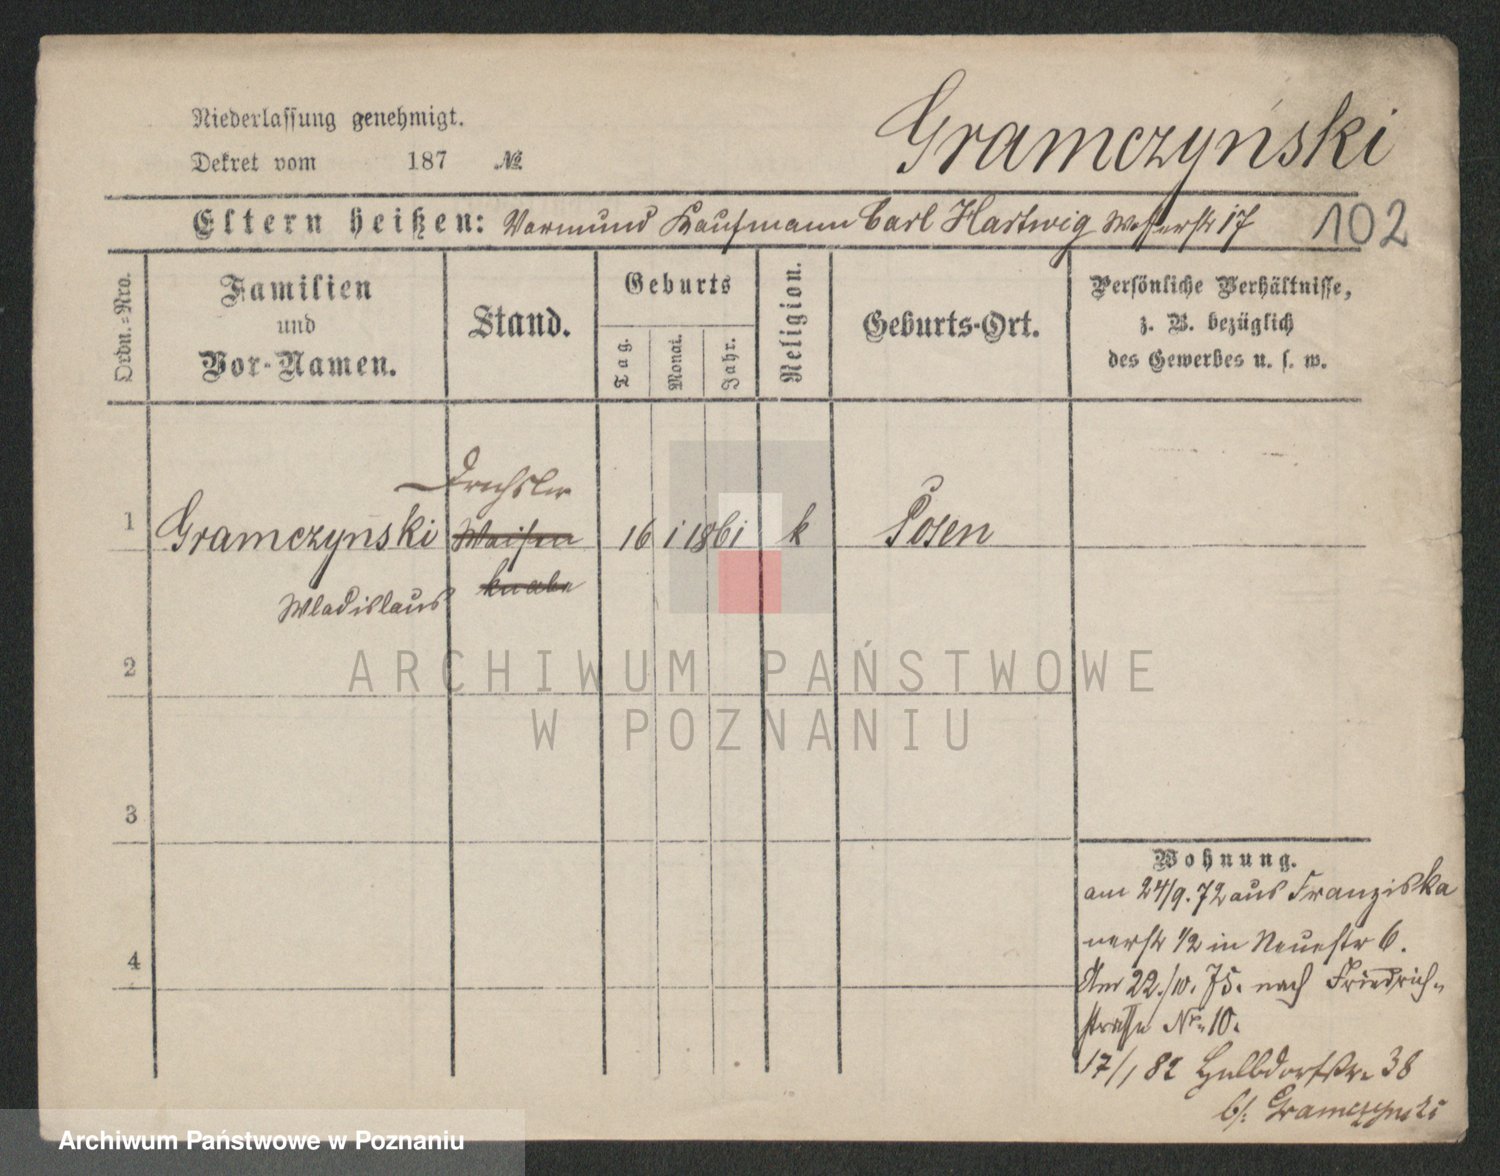 Niederlassung genehmigt.
Dekret vom 187 №
Gramczyński
Eltern heißen: Vormund Kaufmann Carl Hartwig Wasserstr 17
102
Ordn.-Nro.
Familien
und
Vor-Namen.
Stand.
Geburts
Tag.
Monat.
Jahr.
Religion.
Geburts-Ort.
Persönliche Verhältnisse,
z. B. bezüglich
des Gewerbes u. s. w.
Drechsler
1 Gramczynski Waisen 16 1 1861 k Posen
Wladislaus knabe
2
ARCHIWUM PAŃSTWOWE
W POZNANIU
3
Wohnung.
am 24/9. 72 aus Franziska
nerstr 1/2 in Neuestr 6.
4
Am 22./10. 75. nach Friedrich-
straße Nr. 10.
17/1 82 Halbdorfstr. 38
b/: Gramczynski
Archiwum Państwowe w Poznaniu